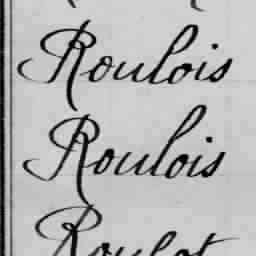 Roulois
Roulois
Roulot